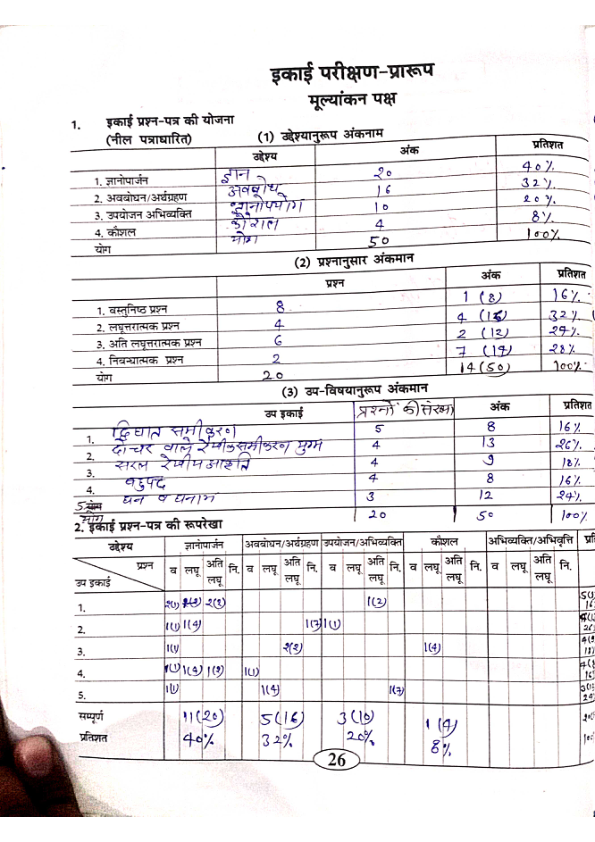 इकाई परीक्षण-प्रारूप
मूल्यांकन पक्ष
1. इकाई प्रश्न-पत्र की योजना
(नील पत्राधारित) (1) उद्देश्यानुरूप अंकनाम
उद्देश्य अंक प्रतिशत
1. ज्ञानोपार्जन ज्ञान 20 40%
2. अवबोधन/अर्थग्रहण अवबोध 16 32%
3. उपयोजन अभिव्यक्ति ज्ञानोपयोग 10 20%
4. कौशल कौशल 4 8%
योग योग 50 100%
(2) प्रश्नानुसार अंकमान
प्रश्न अंक प्रतिशत
1. वस्तुनिष्ठ प्रश्न 8 1 (8) 16%
2. लघूत्तरात्मक प्रश्न 4 4 (16) 32%
3. अति लघूत्तरात्मक प्रश्न 6 2 (12) 24%
4. निबन्धात्मक प्रश्न 2 7 (14) 28%
योग 20 14 (50) 100%
(3) उप-विषयानुरूप अंकमान
उप इकाई प्रश्नों की संख्या अंक प्रतिशत
1. द्विघात समीकरण 5 8 16%
2. दो चर वाले रेखीक समीकरण युग्म 4 13 26%
3. सरल रेखीय आकृति 4 9 18%
4. बहुपद 4 8 16%
5. घन व घनाभ 3 12 24%
योग 20 50 100%
2. इकाई प्रश्न-पत्र की रूपरेखा
उद्देश्य ज्ञानोपार्जन अवबोधन/अर्थग्रहण उपयोजन/अभिव्यक्ति कौशल अभिव्यक्ति/अभिवृत्ति
प्रश्न व लघू अति लघू नि. व लघू अति लघू नि. व लघू अति लघू नि. व लघू अति लघू नि. व लघू अति लघू नि.
उप इकाई
1. 2(2) 1(2)
2. 1(1) 1(4) 1(1)
3. 1(1) 2(2) 1(4)
4. 1(1) 1(1)
5. 1(1) 1(4) 1(7)
सम्पूर्ण 11(20) 5(16) 3(10) 1(4)
प्रतिशत 40% 32% 20% 8%
26